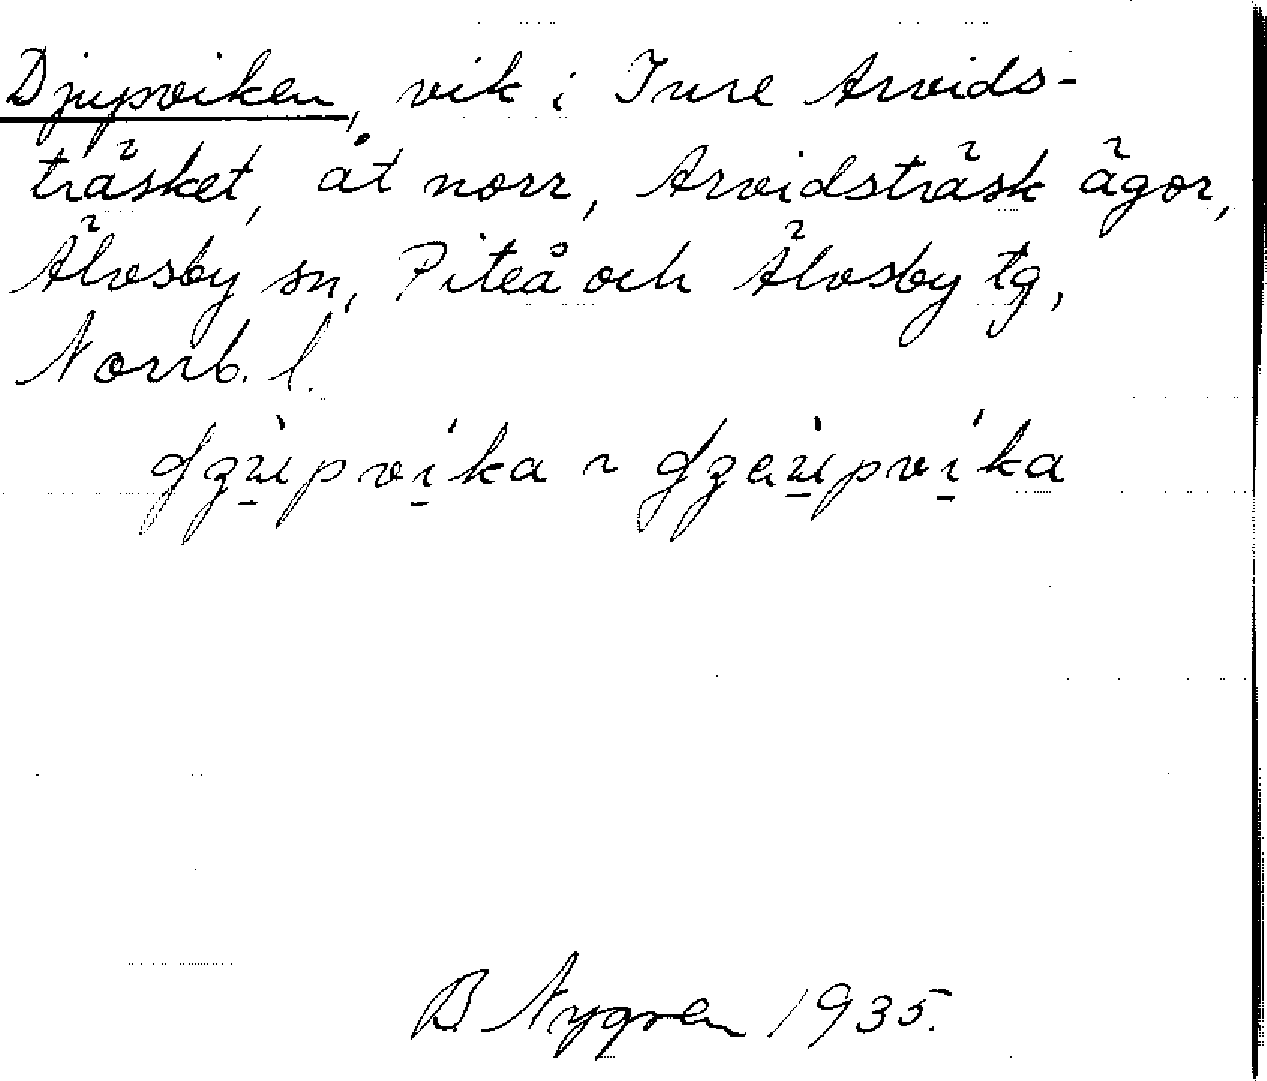 Djupviken, vik i Inre Arvids-
träsket, åt norr, Arvidsträsk ägor,
Älvsby sn, Piteå och Älvsby tg,
Norrb. l.
B Nygren 1935.